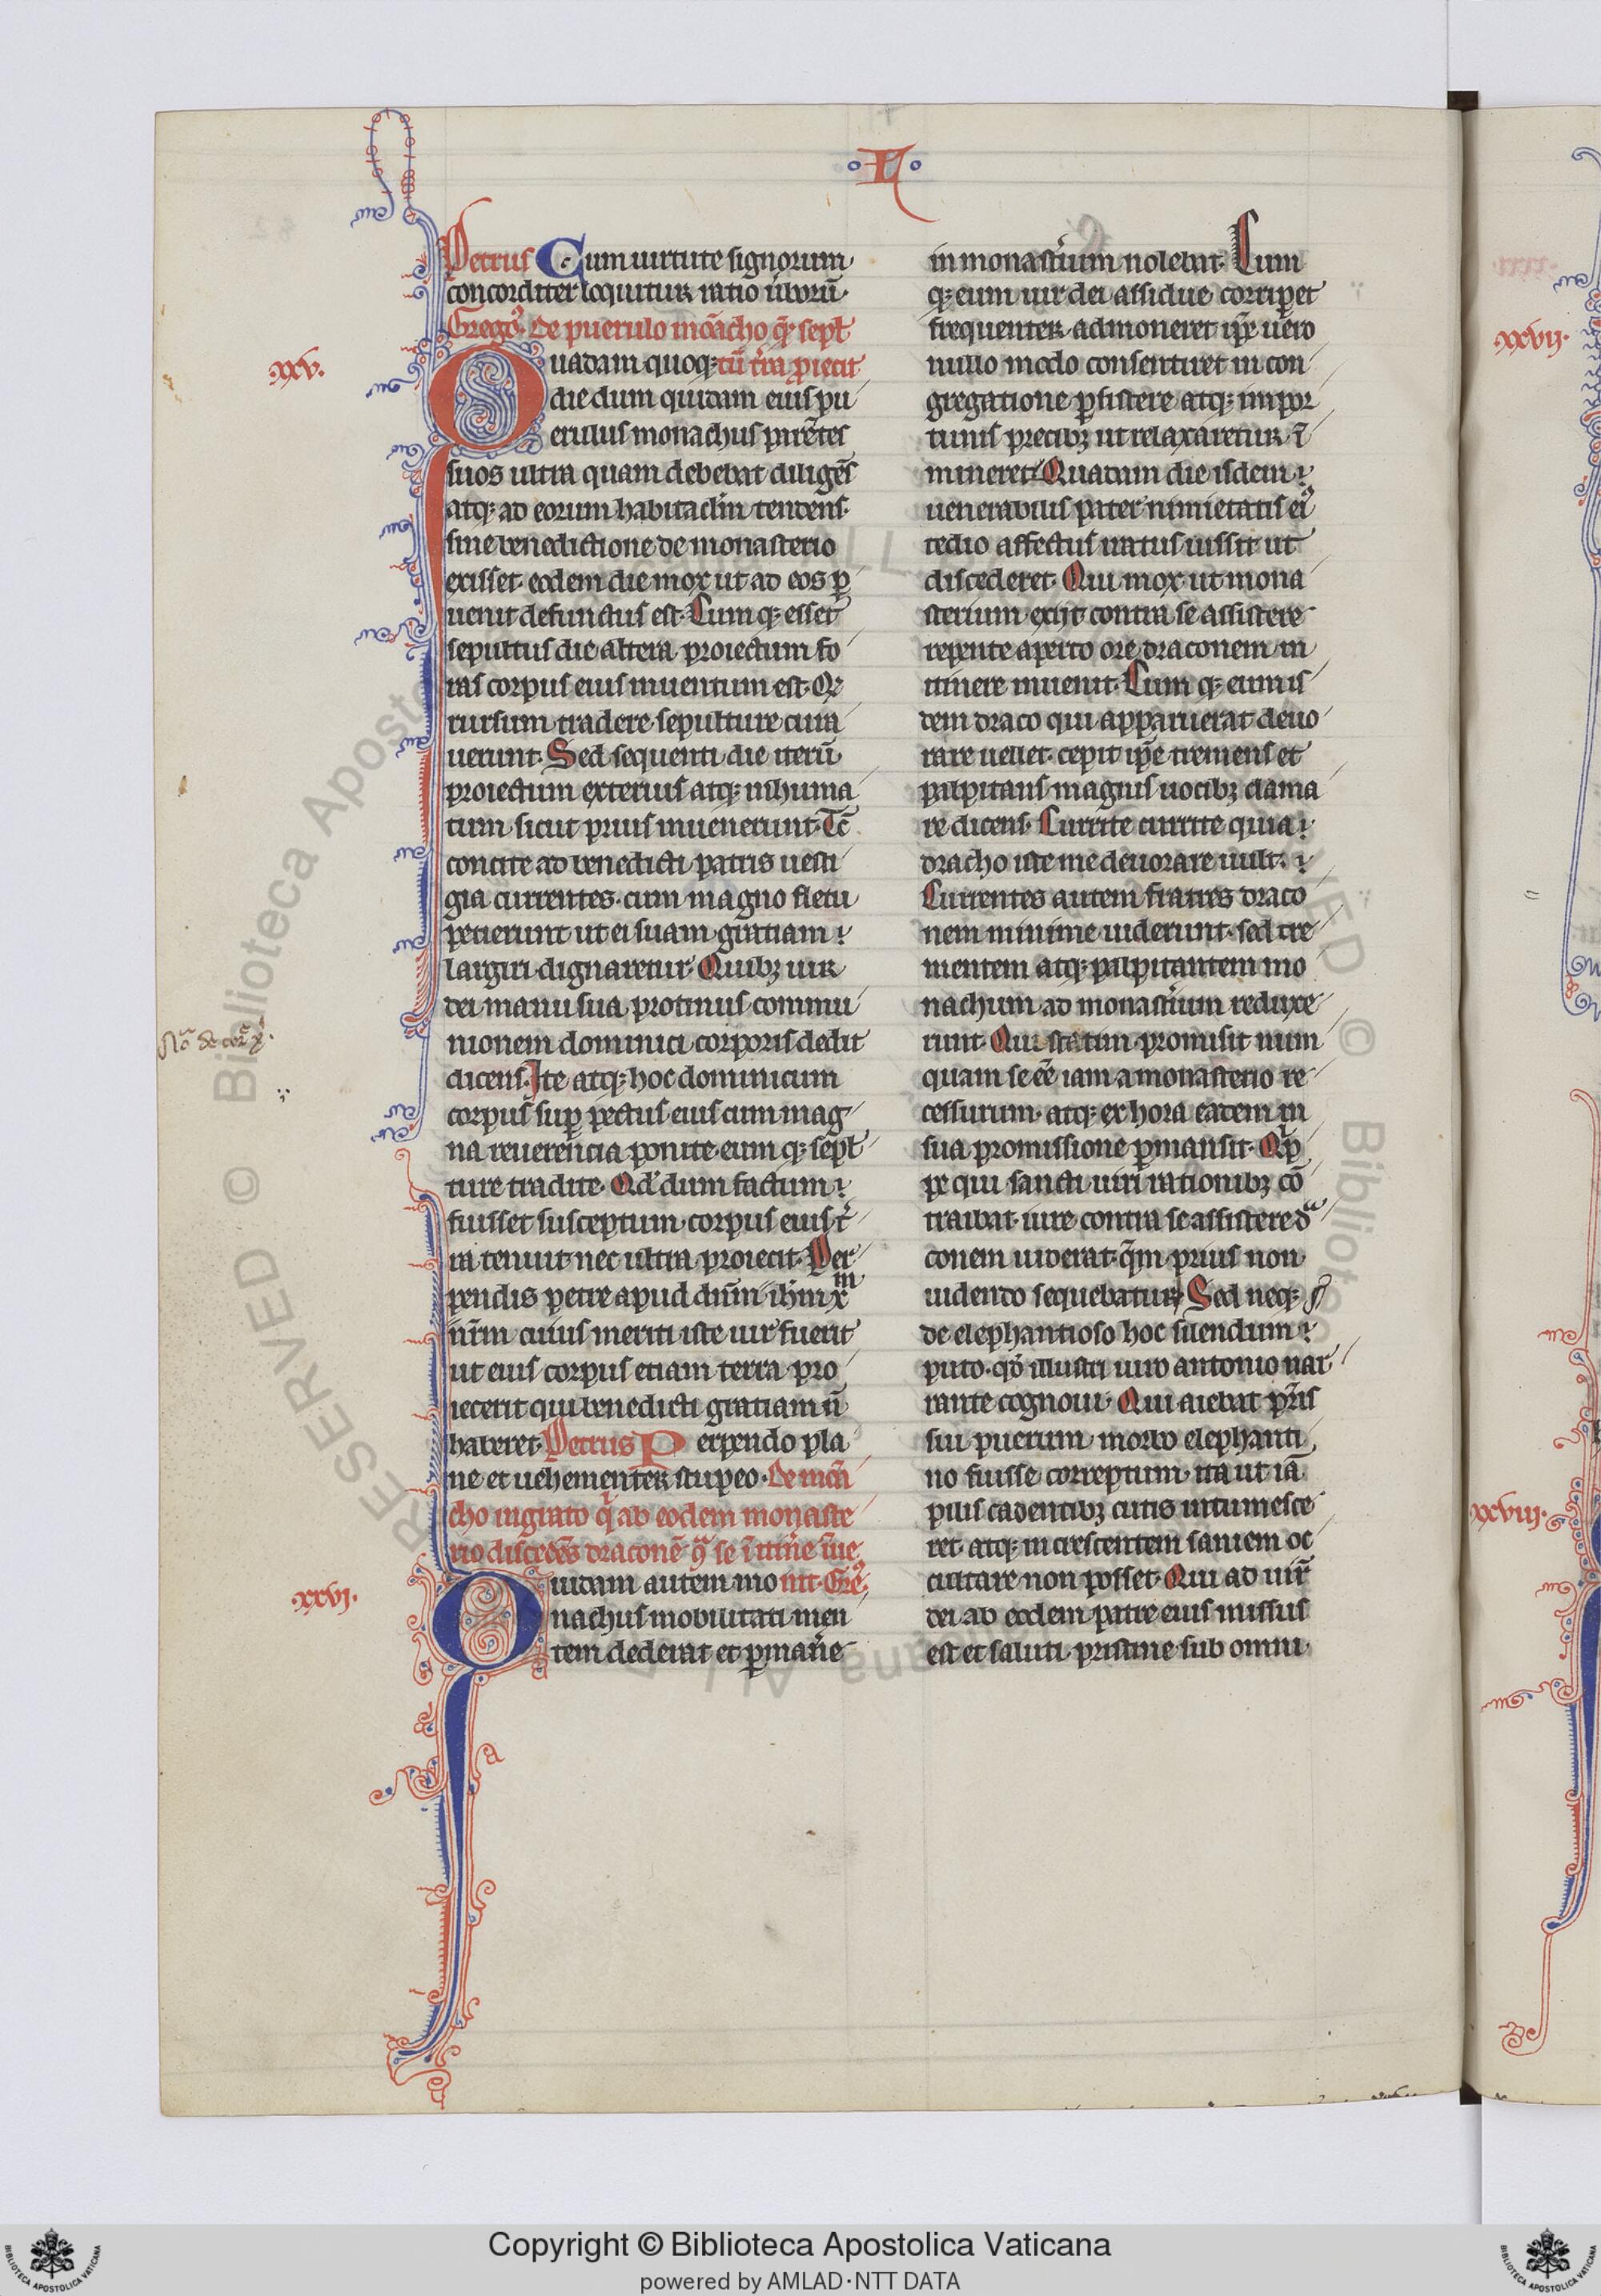 L
Petrus Cum uirtute signorum
concorditer loquitur ratio ũborũ.
Gregoꝰ. De puerulo mõacho q̃ sepl̃
xxv.
Quadam quoqꝫ tũ tr̃ra ꝓiecit
die dum quidam eius pu
erulus monachus parẽtes
suos ultra quam debebat diligẽs
atqꝫ ad eorum habitaclm̃ tendens.
sine benedictione de monasterio
exisset. eodem die mox ut ad eos ꝑ
uenit defunctus est. Cumqꝫ esset
sepultus die altera proiectum fo
ras corpus eius inuentum est. Qd̃
rursum tradere sepulture cura
uerunt. Sed sequenti die iterũ
proiectum exterius atqꝫ inhuma
tum sicut prius inuenerunt. Tc̃
concite ad benedicti patris uesti
gia currentes. cum magno fletu
petierunt ut ei suam gratiam
largiri dignaretur. Quibꝫ uir
dei manu sua protinus commu
nionem dominici corporis dedit
dicens. Ite atqꝫ hoc dominicum
corpus suꝑ pectus eius cum mag
na reuerencia ponite. eumqꝫ sepl̃
ture tradite. Qd̃ dum factum
fuisset susceptum corpus eius t̃
ra tenuit. nec ultra proiecit. Per
pendis petre apud dñm ihm̃ xm
nr̃m cuius meriti iste uir fuerit
ut eius corpus etiam terra pro
iecerit qui benedicti gratiam ñ
haberet. Petrus Perpendo pla
ne et uehementer stupeo. De mõa
cho ingrato q̃ ab eodem monaste
rio discedẽs draconẽ ꝯ̃ se ĩ itiñe ĩue
xxvi.
Quidam autem mo nit. Greꝰ.
nachus mobilitati men
tem dederat et ꝑmañe
in monast̃ium nolebat. Cum
qꝫ eum uir dei assidue corriꝑet
frequenter admoneret ip̃e uero
nullo modo consentiret in con
gregatione ꝑsistere atqꝫ impor
tunis precibꝫ ut relaxaretur ĩ
mineret. Quadam die isdem
uenerabilis pater nimietatis eiꝰ
tedio affectus iratus iussit ut
discederet. Qui mox ut mona
sterium exiit contra se assistere
repente aperto ore draconem in
itinere inuenit. Cumqꝫ eum is
dem draco qui apparuerat deuo
rare uellet. cepit ip̃e tremens et
palpitans magnis uocibꝫ clama
re dicens. Currite currite quia
dracho iste me deuorare uult.
Currentes autem fratres draco
nem minime uiderunt. sed tre
mentem atqꝫ palpitantem mo
nachum ad monast̃ium reduxe
runt. Qui statim promisit nun
quam se eẽ iam a monasterio re
cessurum. atqꝫ ex hora eadem in
sua promissione ꝑmansit. Q̃ ꝓ
pe qui sancti uiri rationibꝫ cõ
traibat. iure contra se assistere dᵃ
conem uiderat. qm̃ prius non
uidendo sequebatur. Sed neqꝫ
de elephantioso hoc silendum
puto. qd̃ illustri uiro antonio nar
rante cognoui. Qui aiebat pr̃is
sui puerum morbo elephanti
no fuisse correptum. ita ut iã
pilis cadentibꝫ cutis intumesce
ret. atqꝫ increscentem saniem oc
cultare non posset. Qui ad uir̃
dei ab eodem patre eius missus
est et saluti pristine sub omni
xxvii.
xxviii.
RESERVED © Biblioteca Apostolica Vaticana ALL RIGHTS RESERVED © Biblioteca Apostolica Vaticana ALL R
Copyright © Biblioteca Apostolica Vaticana
powered by AMLAD·NTT DATA
BIBLIOTECA APOSTOLICA VATICANA
BIBLIOTECA APOSTOLICA VATICANA